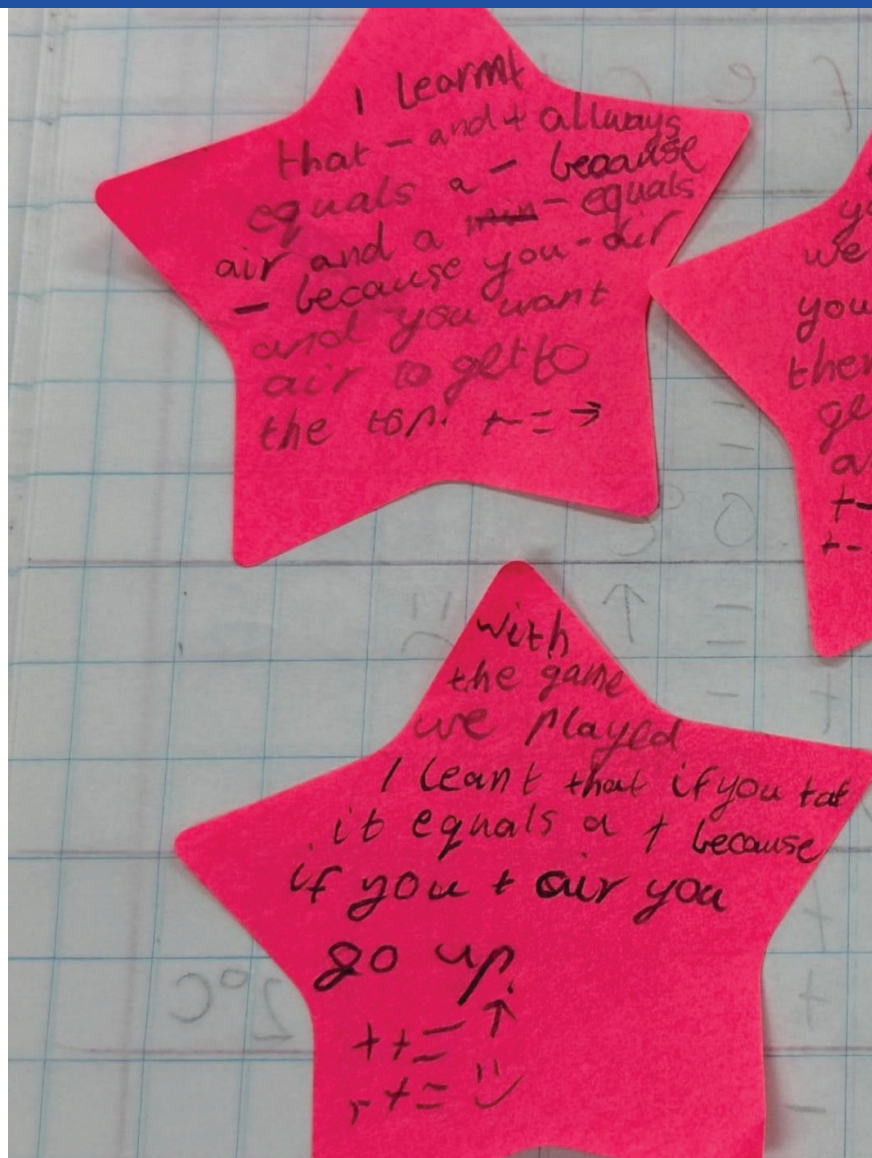 I learnt
that - and + allways
equals a - because
air and a - equals
- because you - air
and you want
air to get to
the top. + - = →
yo
we
you
then
ge
a
+ -
+ -
with
the game
we played
I leant that if you + at
it equals a + because
if you + air you
go up.
+ + = ↑
+ + = :)
2°C